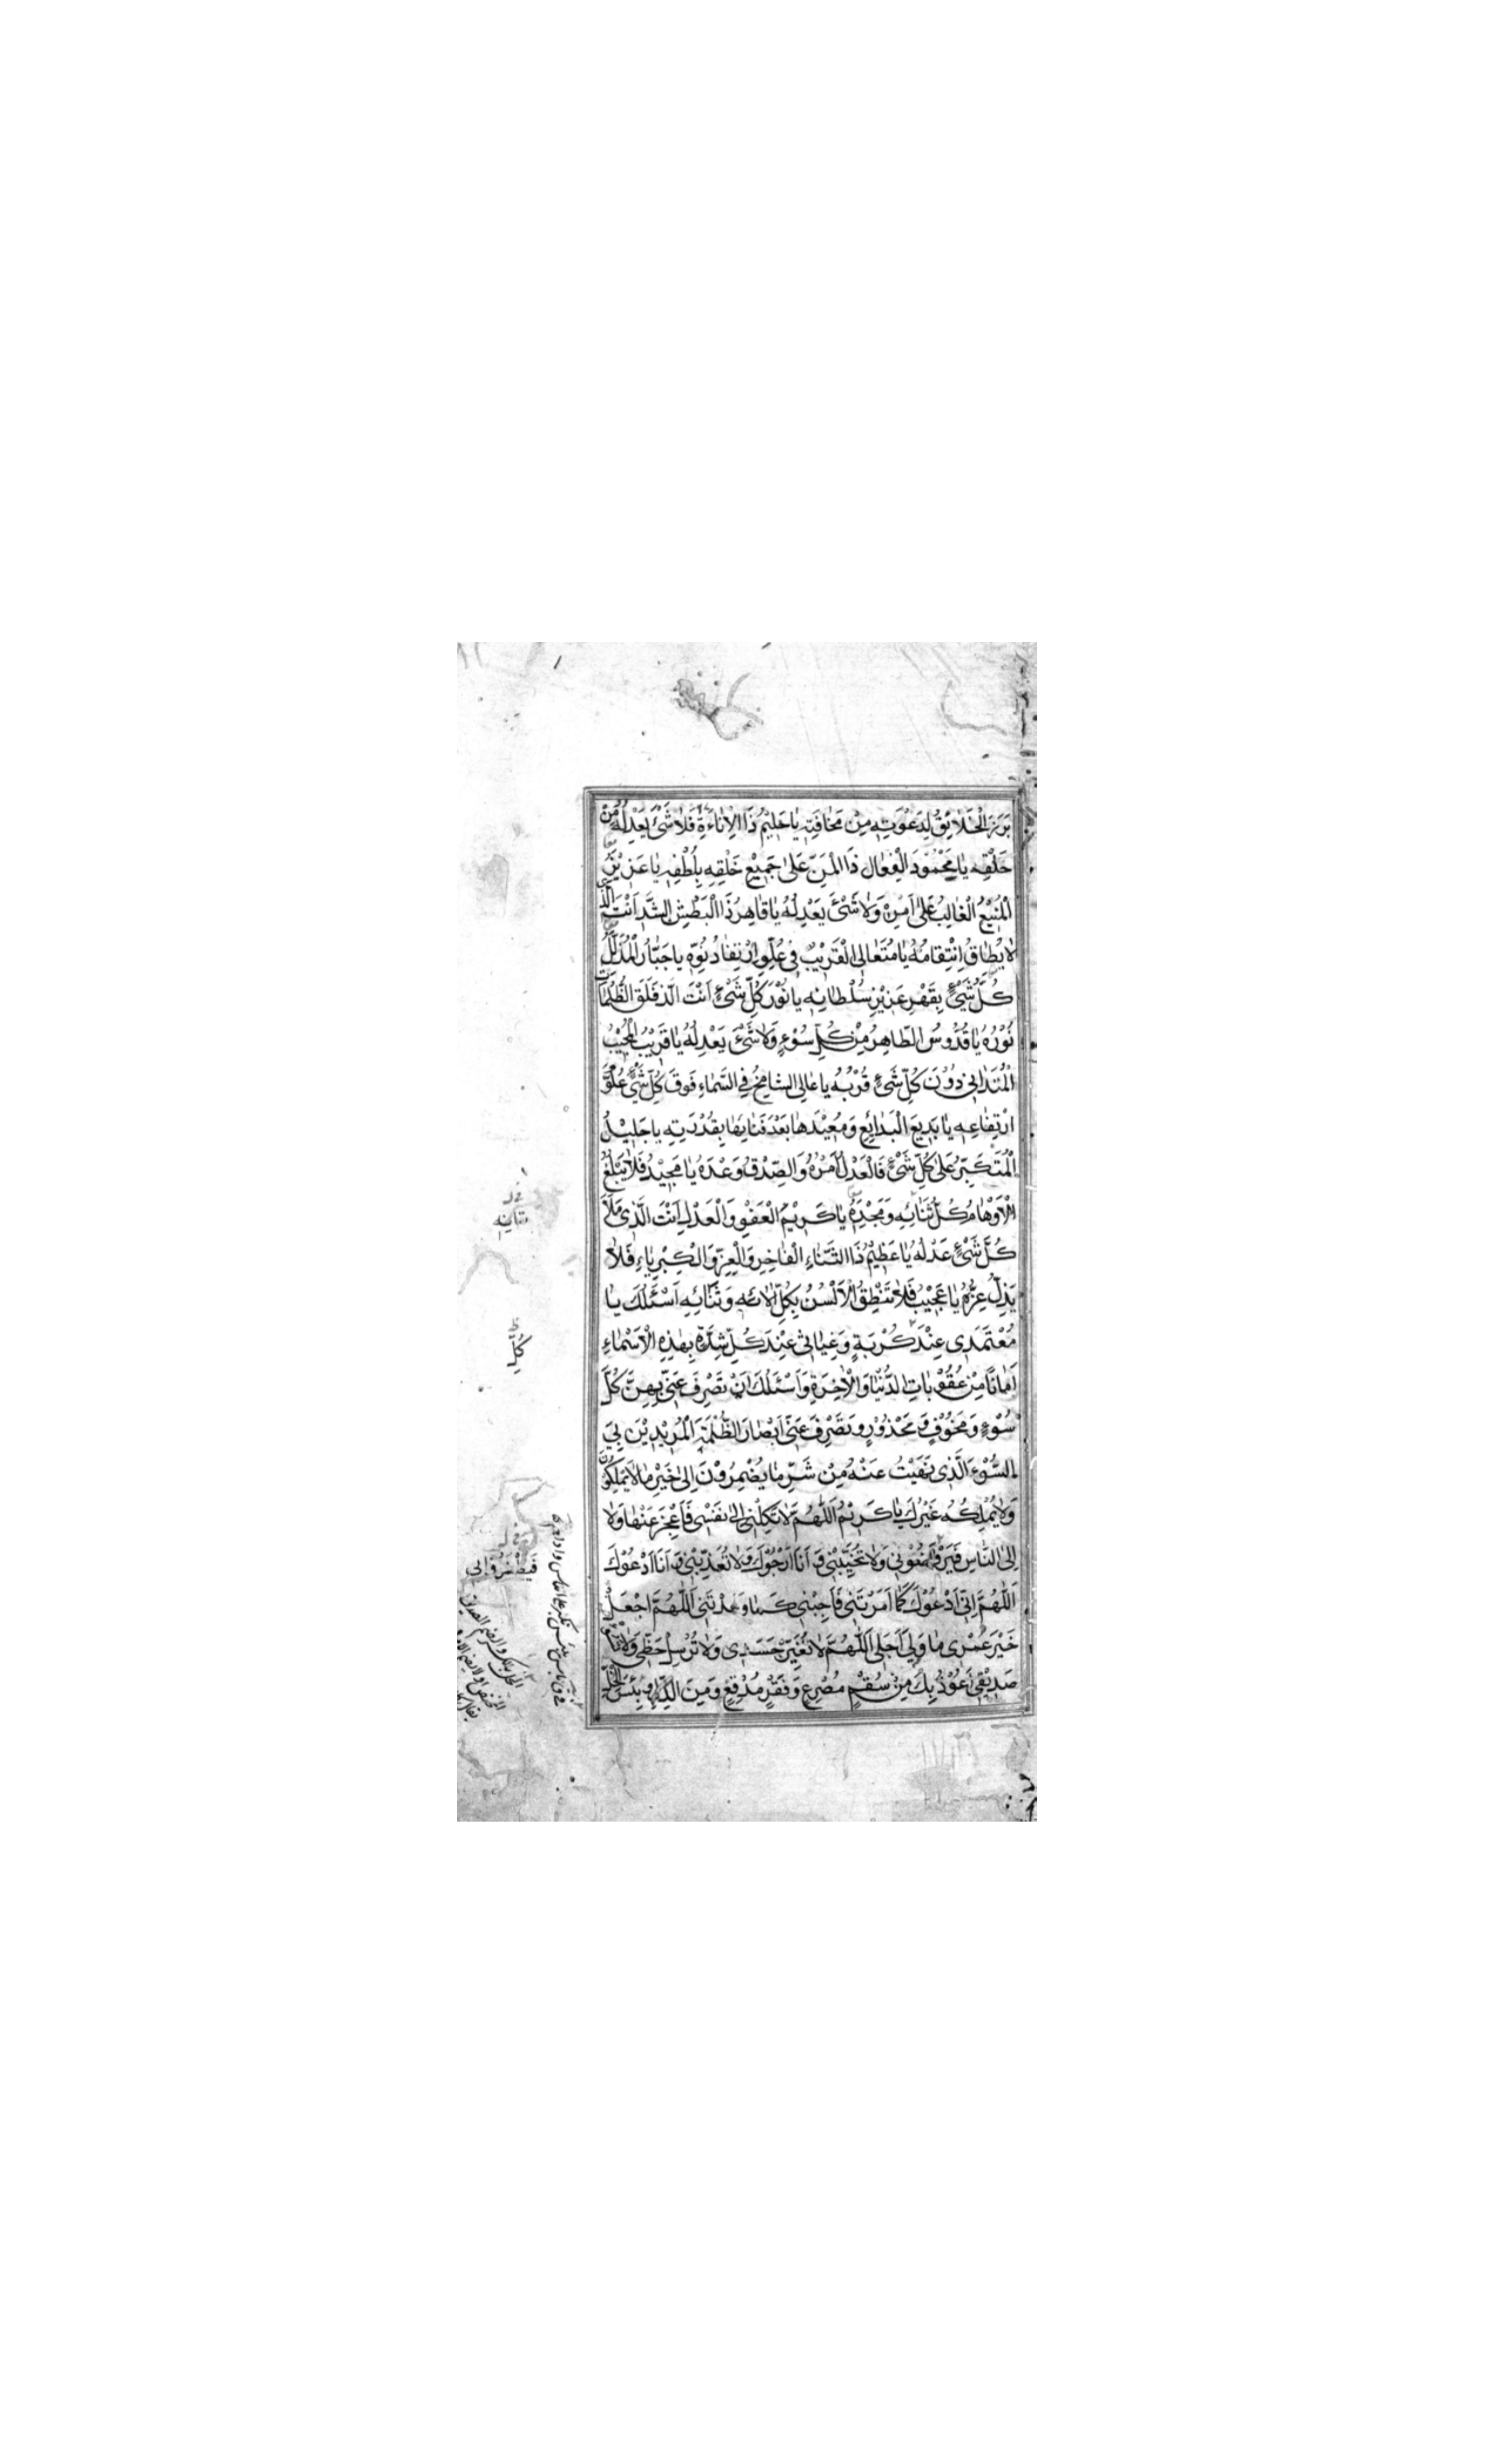 بَرَزَ الْخَلَائِقُ لِدَعْوَتِهِ مِنْ مَخَافَتِهِ يَا حَلِيمُ ذَا الْاَنَاءَةِ فَلَا شَيْءَ يَعْدِلُهُ مِنْ
خَلْقِهِ يَا مَحْمُودَ الْفِعَالِ ذَا الْمَنِّ عَلٰى جَمِيْعِ خَلْقِهِ بِلُطْفِهِ يَا عَزِيْزُ
الْمَنِيْعُ الْغَالِبُ عَلٰى اَمْرِهِ وَلَا شَيْءَ يَعْدِلُهُ يَا قَاهِرُ ذَا الْبَطْشِ الشَّدِيدِ اَنْتَ الَّذِي
لَا يُطَاقُ اِنْتِقَامُهُ يَا مُتَعَالِي الْقَرِيْبُ فِي عُلُوِّ ارْتِفَاعِ دُنُوِّهِ يَا جَبَّارُ الْمُذَلِّلُ
كُلَّ شَيْءٍ بِقَهْرِ عَزِيْزِ سُلْطَانِهِ يَا نُوْرَ كُلِّ شَيْءٍ اَنْتَ الَّذِي فَلَقَ الظُّلُمَاتِ
نُوْرُهُ يَا قُدُّوسُ الطَّاهِرُ مِنْ كُلِّ سُوْءٍ وَلَا شَيْءَ يَعْدِلُهُ يَا قَرِيْبُ الْمُجِيْبُ
الْمُتَدَانِي دُوْنَ كُلِّ شَيْءٍ قُرْبُهُ يَا عَالِي الشَّامِخُ فِي السَّمَاءِ فَوْقَ كُلِّ شَيْءٍ عُلُوُّ
ارْتِفَاعِهِ يَا بَدِيْعَ الْبَدَائِعِ وَمُعِيْدَهَا بَعْدَ فَنَائِهَا بِقُدْرَتِهِ يَا جَلِيْلُ
الْمُتَكَبِّرُ عَلٰى كُلِّ شَيْءٍ فَالْعَدْلُ اَمْرُهُ وَالصِّدْقُ وَعْدُهُ يَا مَجِيْدُ فَلَا يَبْلُغُ
الْاَوْهَامُ كُلَّ ثَنَائِهِ وَمَجْدِهِ يَا كَرِيْمَ الْعَفْوِ وَالْعَدْلِ اَنْتَ الَّذِي مَلَاَ
كُلَّ شَيْءٍ عَدْلُهُ يَا عَظِيْمُ ذَا الثَّنَاءِ الْفَاخِرِ وَالْعِزِّ وَالْكِبْرِيَاءِ فَلَا
يَذِلُّ عِزُّهُ يَا عَجِيْبُ فَلَا تَنْطِقُ الْاَلْسُنُ بِكُلِّ اٰلَائِهِ وَثَنَائِهِ اَسْئَلُكَ يَا
مُعْتَمَدِي عِنْدَ كُرْبَةٍ وَغِيَاثِي عِنْدَ كُلِّ شِدَّةٍ بِهٰذِهِ الْاَسْمَاءِ
اَمَانًا مِنْ عُقُوْبَاتِ الدُّنْيَا وَالْاٰخِرَةِ وَاَسْئَلُكَ اَنْ تَصْرِفَ عَنِّي بِهِنَّ كُلَّ
سُوْءٍ وَمَخُوْفٍ وَمَحْذُوْرٍ وَتَصْرِفَ عَنِّي اَبْصَارَ الظَّلَمَةِ الْمُرِيْدِيْنَ بِيَ
السُّوْءَ الَّذِي نَهَيْتَ عَنْهُ مِنْ شَرِّ مَا يُضْمِرُوْنَ اِلٰى خَيْرِ مَا لَا يَمْلِكُوْنَ
وَلَا يَمْلِكُهُ غَيْرُكَ يَا كَرِيْمُ اَللّٰهُمَّ لَا تَكِلْنِي اِلٰى نَفْسِي فَاَعْجِزَ عَنْهَا وَلَا
اِلَى النَّاسِ فَيَرْفُضُوْنِي وَلَا تُخَيِّبْنِي وَ اَنَا اَرْجُوْكَ وَلَا تُعَذِّبْنِي وَ اَنَا اَدْعُوْكَ
اَللّٰهُمَّ اِنِّي اَدْعُوْكَ كَمَا اَمَرْتَنِي فَاَجِبْنِي كَمَا وَعَدْتَنِي اَللّٰهُمَّ اجْعَلْ
خَيْرَ عُمْرِي مَا وَلِيَ اَجَلِي اَللّٰهُمَّ لَا تُغَيِّرْ جَسَدِي وَلَا تُرْسِلْ حَظِّي وَلَا تَسُؤْ
صَدِيْقِي اَعُوْذُ بِكَ مِنْ سُقْمٍ مُصْرِعٍ وَفَقْرٍ مُدْقِعٍ وَمِنَ الذُّلِّ وَبِئْسَ الْخِلُّ
كُلِّ